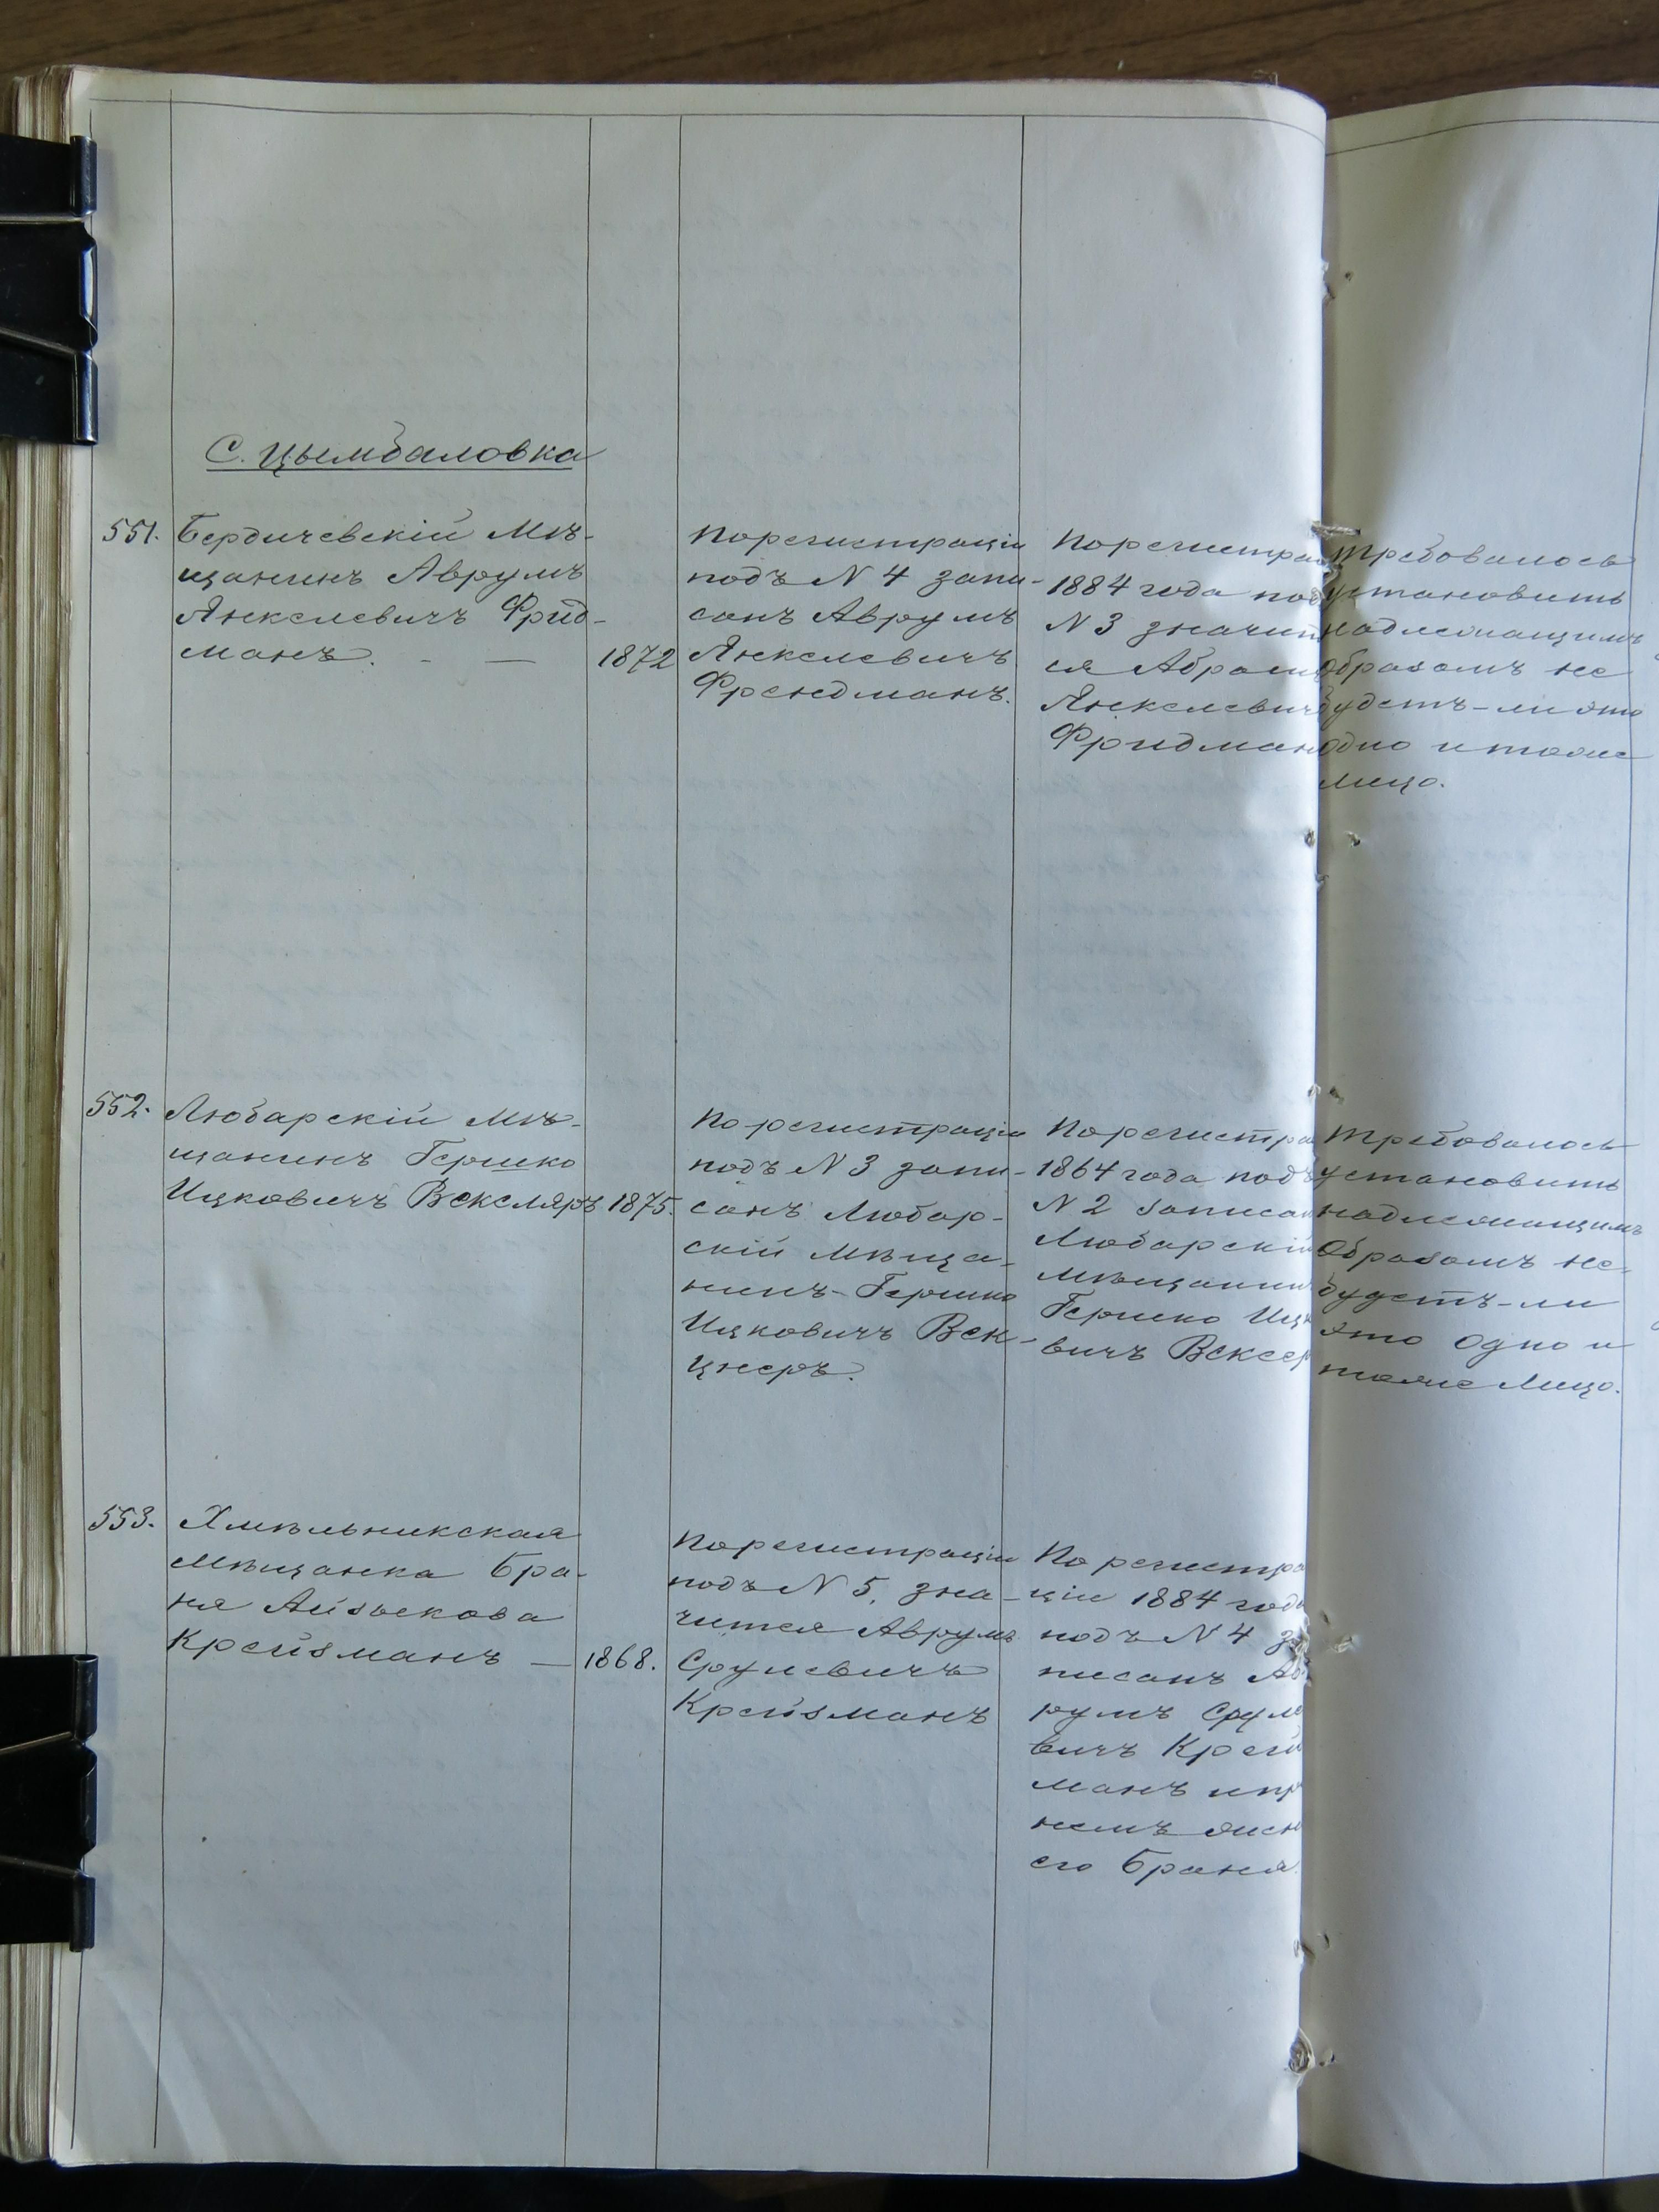 С. Цымбаловка
551.
Бердичевскій Мѣ-
щанинъ Аврумъ
Янкелевичъ Фрид-
манъ. - — 1872
По регистраціи
подъ N 4 запи-
санъ Аврумъ
Янкелевичъ
Френдманъ.
По регистра
1884 года под
N 3 значит
ся Абрам
Янкелевич
Фридман
Требовалось
установить
надлежащимъ
образомъ не
будетъ-ли это
одно и тоже
лицо.
552.
Любарскій Мѣ-
щанинъ Гершко
Ицковичъ Векслярѣ 1875.
По регистраціи
подъ N 3 запи-
санъ Любар-
скій Мѣща-
нинъ-Гершко
Ицковичъ Век-
цнеръ.
По регистра
1864 года подъ
N 2 записан
Любарскій
Мѣщанин
Гершко Ицк
вичъ Вексер
Требовалось
установить
надлежащимъ
образомъ не-
будетъ-ли
это одно и
тоже Лицо.
553.
Хмѣльникская
Мѣщанка Бра-
ня Айзыкова
Крейзманъ — 1868.
По регистраціи
подъ N 5, зна-
чится Аврумъ
Срулевичъ
Крейзманъ
По регистра
ціи 1884 года
подъ N 4 за
писанъ Ав
румъ Сруле
вичъ Крей
манъ и пр
немъ жен
его Браня.